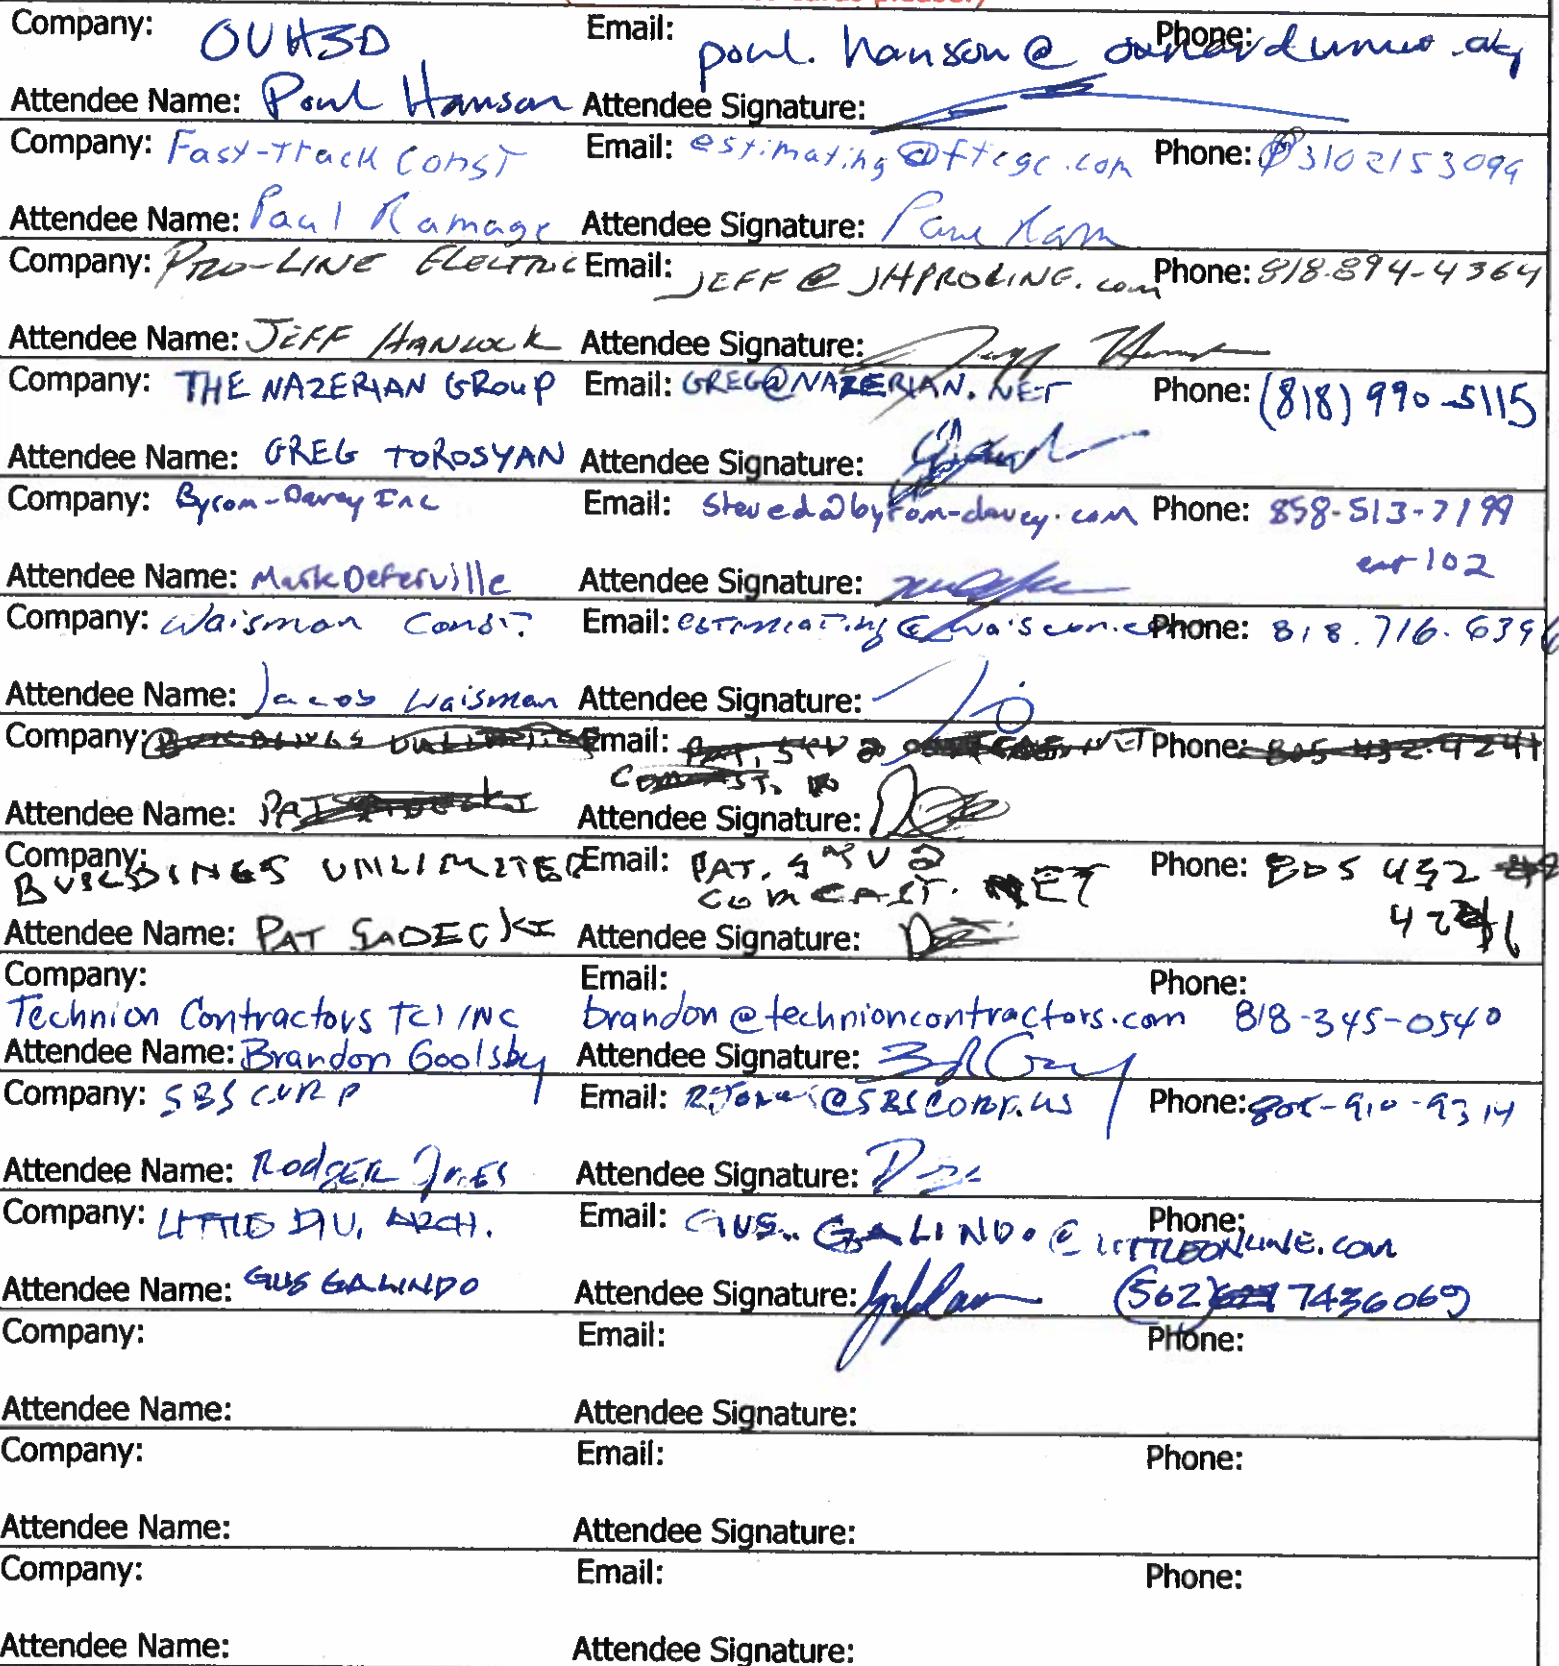 Company: OUHSD Email: poul.hanson@ Phone:
Attendee Name: Poul Hanson Attendee Signature:
Company: Fast-Track Const Email: estimating@ftcgc.com Phone: 3102153099
Attendee Name: Paul Ramage Attendee Signature:
Company: PRO-LINE ELECTRIC Email: JEFF@JHPROLINE.com Phone: 818-894-4364
Attendee Name: JEFF HANCOCK Attendee Signature:
Company: THE NAZERIAN GROUP Email: GREG@NAZERIAN.NET Phone: (818) 990-5115
Attendee Name: GREG TOROSYAN Attendee Signature:
Company: Byrom-Davey Inc Email: steved@byrom-davey.com Phone: 858-513-7199
ext 102
Attendee Name: Mark Deterville Attendee Signature:
Company: Waisman Const. Email: Phone: 818.716.6396
Attendee Name: Jacob Waisman Attendee Signature:
Company: Email: Phone: 805 432-4241
Attendee Name: PAT Attendee Signature:
Company: BUILDINGS UNLIMITED Email: PAT. Phone: 805 432
COMCAST.NET
Attendee Name: PAT SADECKI Attendee Signature:
Company: Email: Phone:
Technion Contractors TCI INC brandon@technioncontractors.com 818-345-0540
Attendee Name: Brandon Goolsby Attendee Signature:
Company: SBS CORP Email: Phone: 805-910-9314
Attendee Name: Rodger Attendee Signature:
Company: LITTLE DIV. ARCH. Email: GUS.GALINDO@LITTLEONLINE.com Phone:
Attendee Name: GUS GALINDO Attendee Signature: (562) 7436069
Company: Email: Phone:
Attendee Name: Attendee Signature:
Company: Email: Phone:
Attendee Name: Attendee Signature:
Company: Email: Phone:
Attendee Name: Attendee Signature: